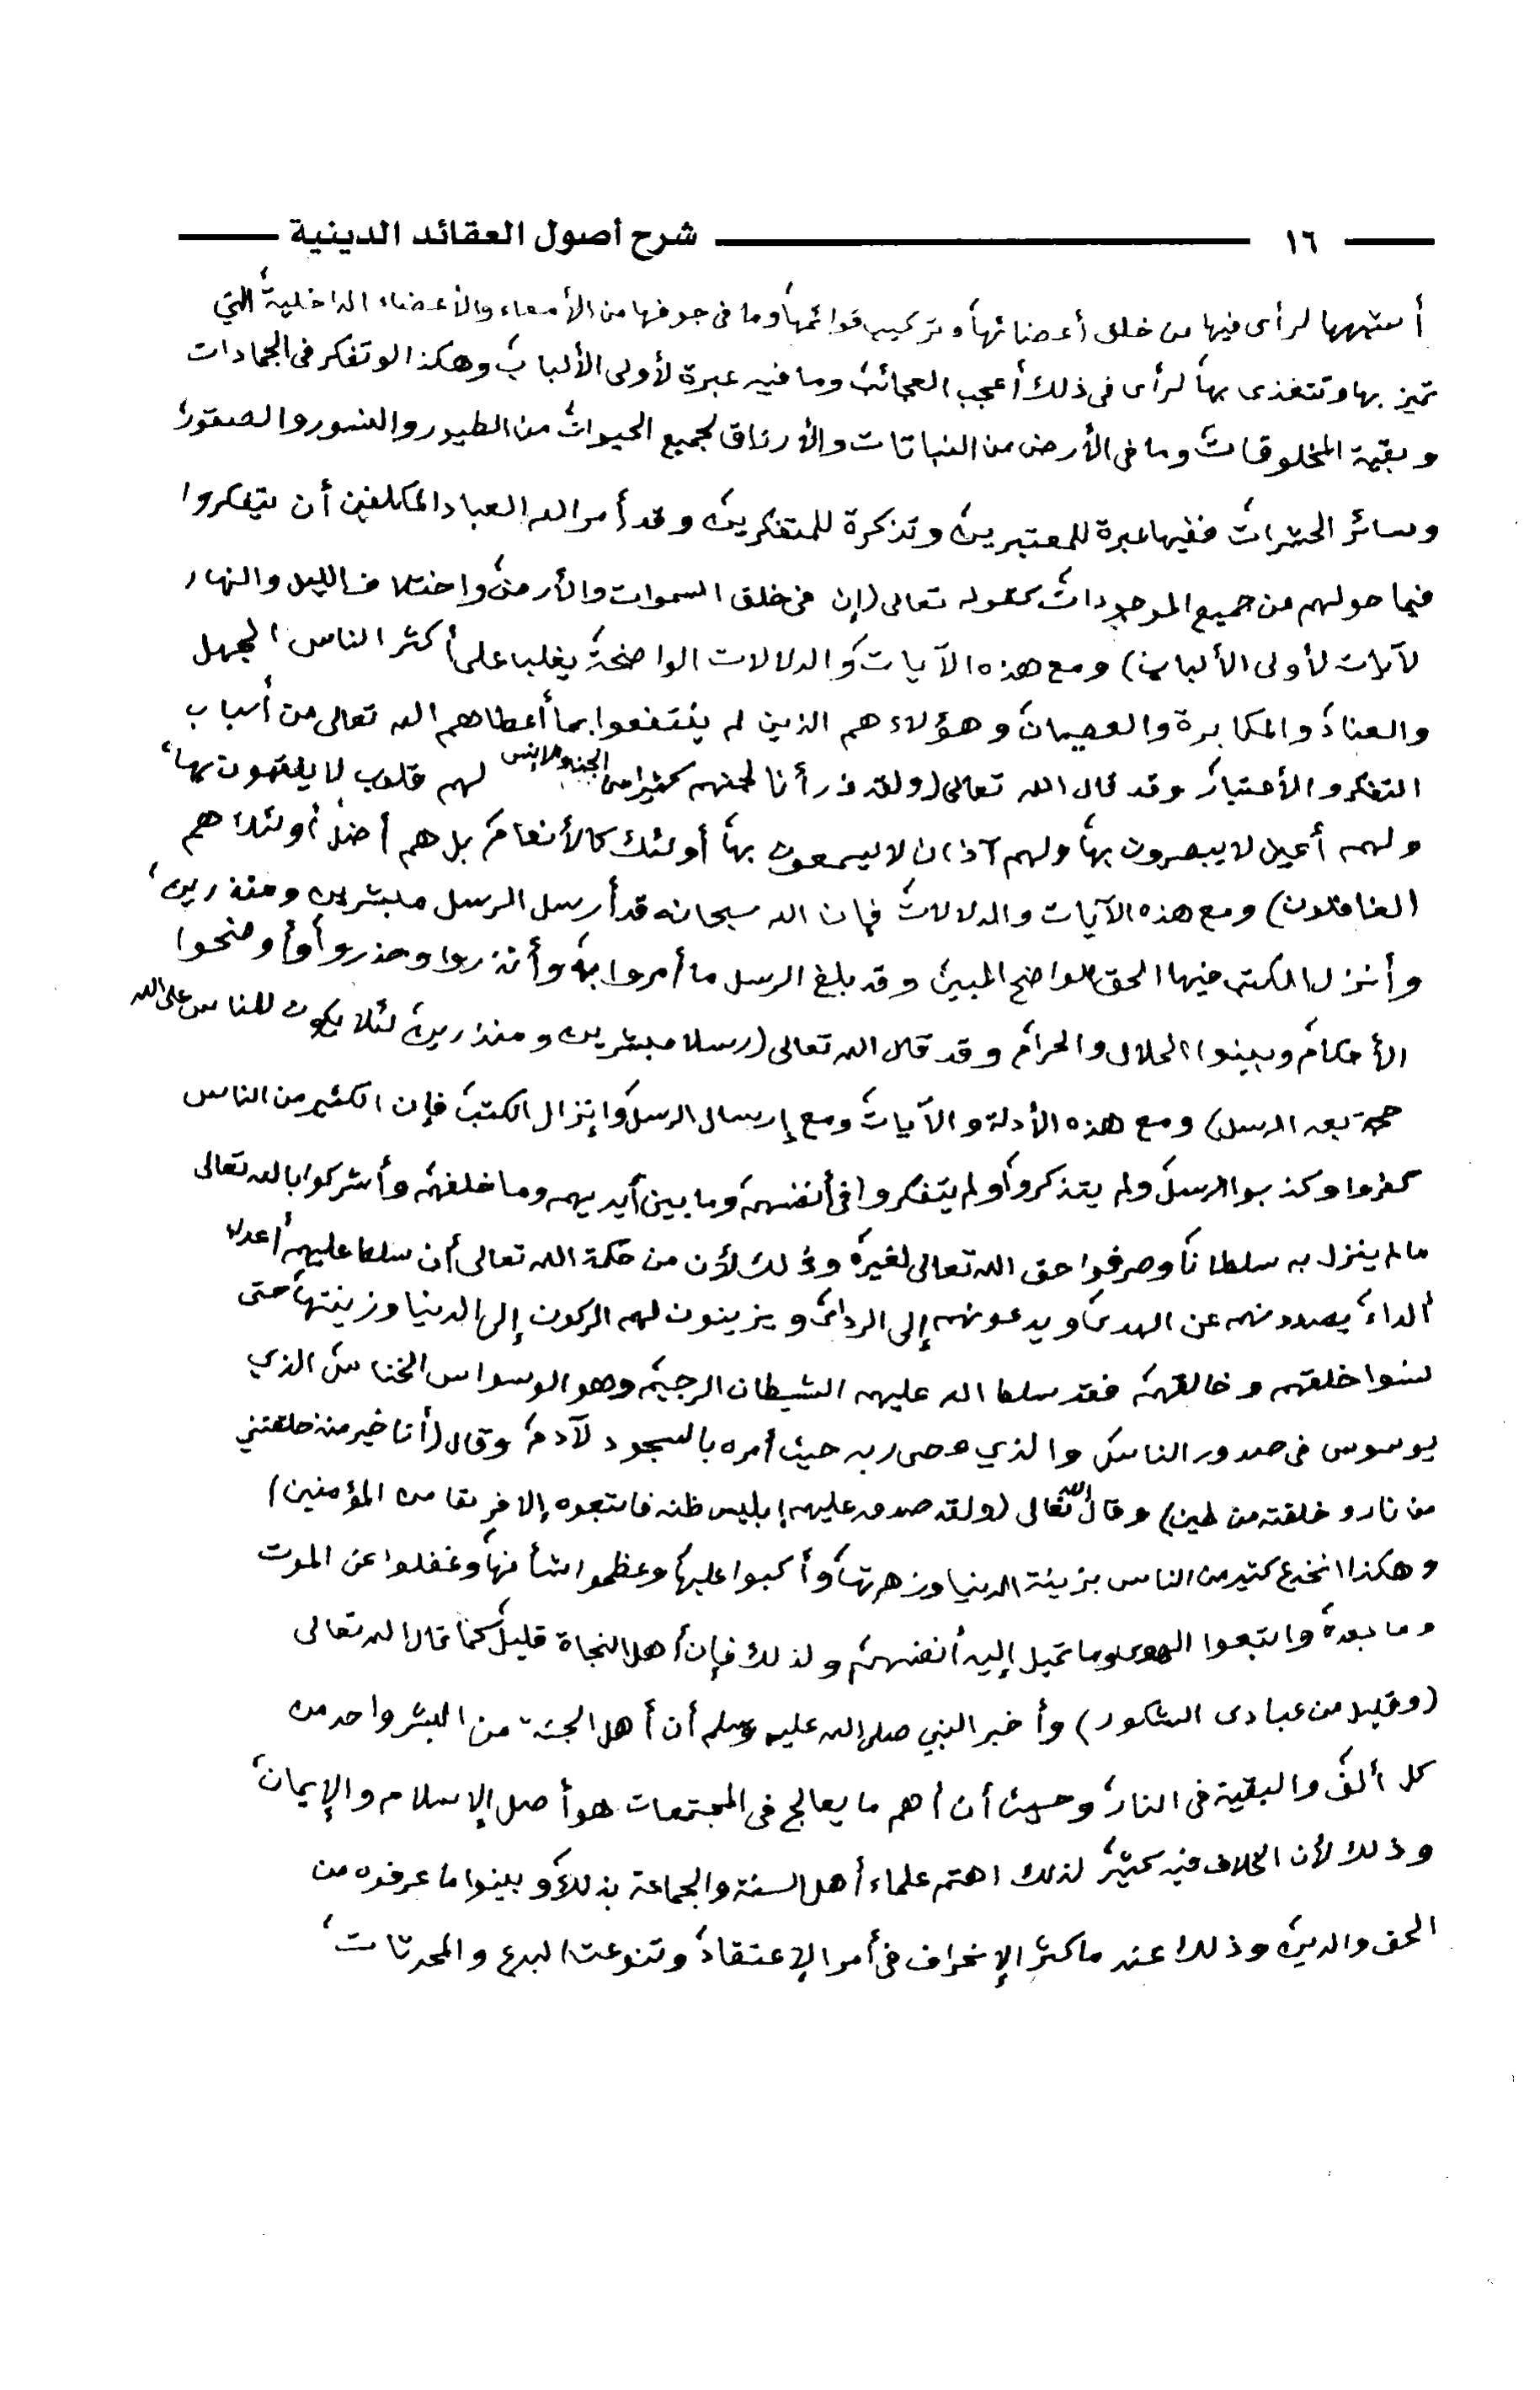 ١٦ شرح أصول العقائد الدينية
أشبهها لرأى فيها من خلق أعضائها، وتركيب قوائمها، وما في جوفها من الأمعاء والأعضاء الداخلية، التي
تميز بها وتتغذى بها، لرأى في ذلك أعجب العجائب، وما فيه عبرة لأولى الألباب، وهكذا لو تفكر في الجمادات
وبقية المخلوقات، وما في الأرض من النباتات والأرزاق لجميع الحيوانات من الطيور والنسور والصقور،
وسائر الحشرات، ففيها عبرة للمعتبرين، وتذكرة للمتفكرين، وقد أمر الله العباد المكلفين أن يتفكروا
فيما حولهم من جميع الموجودات، كقوله تعالى (إن في خلق السموات والأرض، واختلاف الليل والنهار
لآيات لأولى الألباب) ومع هذه الآيات، والدلالات الواضحة، يغلب على أكثر الناس الجهل
والعناد، والمكابرة والعصيان، وهؤلاء هم الذين لم ينتفعوا بما أعطاهم الله تعالى من أسباب
التفكر والأعتبار، وقد قال الله تعالى (ولقد ذرأنا لجهنم كثيرا من الجن والإنس لهم قلوب لا يفقهون بها،
ولهم أعين لا يبصرون بها، ولهم آذان لا يسمعون بها، أولئك كالأنعام، بل هم أضل، أولئك هم
الغافلون) ومع هذه الآيات والدلالات، فإن الله سبحانه قد أرسل الرسل مبشرين ومنذرين،
وأنزل الكتب فيها الحق الواضح المبين، وقد بلغ الرسل ما أمروا به، وأنذروا وحذروا، وأوضحوا
الأحكام، وبينوا الحلال والحرام، وقد قال الله تعالى (رسلا مبشرين ومنذرين، لئلا يكون للناس على الله
حجة بعد الرسل) ومع هذه الأدلة والآيات، ومع إرسال الرسل، وإنزال الكتب، فإن الكثير من الناس
كفروا وكذبوا الرسل، ولم يتذكروا، ولم يتفكروا في أنفسهم، وما بين أيديهم وما خلفهم، وأشركوا بالله تعالى
مالم ينزل به سلطانا، وصرفوا حق الله تعالى لغيره، وذلك لأن من حكمة الله تعالى أن سلط عليهم أعداء
ألداء، يصدونهم عن الهدى، ويدعونهم إلى الردى، ويزينون لهم الركون إلى الدنيا وزينتها، حتى
نسوا خلقهم وخالقهم، فقد سلط الله عليهم الشيطان الرجيم، وهو الوسواس الخناس، الذي
يوسوس في صدور الناس، والذي عصى ربه حيث أمره بالسجود لآدم، وقال (أنا خير منه خلقتني
من نار وخلقته من طين) وقال الله تعالى (ولقد صدق عليهم إبليس ظنه فاتبعوه إلا فريقا من المؤمنين)
وهكذا انخدع كثير من الناس بزينة الدنيا وزهرتها، وأكبوا عليها، وعظموا شأنها، وغفلوا عن الموت
وما بعده، واتبعوا الهوى، وما تميل إليه أنفسهم، ولذلك فإن أهل النجاة قليل، كما قال الله تعالى
(وقليل من عبادى الشكور) وأخبر النبي صلى الله عليه وسلم أن أهل الجنة من البشر واحد من
كل ألف، والبقية في النار، وحيث أن أهم ما يعالج في المجتمعات هو أصل الإسلام والإيمان،
وذلك لأن الخلاف فيه كثير، لذلك اهتم علماء أهل السنة والجماعة بذلك، وبينوا ما عرفوه من
الحق والدين، وذلك عند ما كثر الإنحراف في أمر الإعتقاد، وتنوعت البدع والمحدثات،